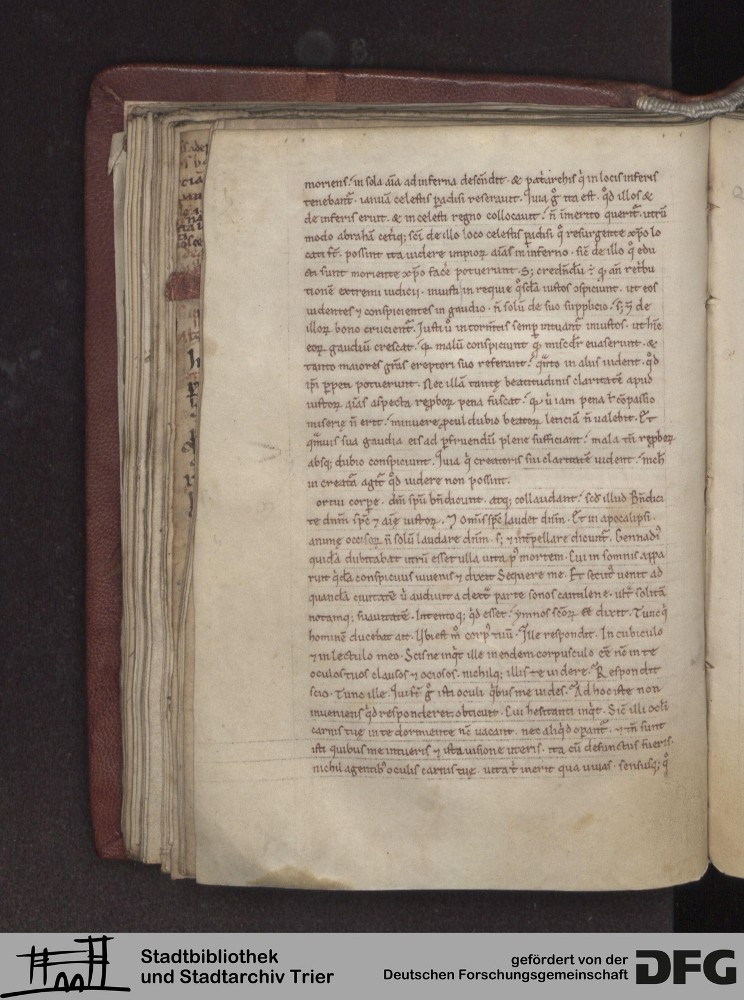 moriens. in sola aīa ad inferna descēdit. & patarchis q̇ in locis inferis
tenebant̄. ianuā celestis padisi reserauit. Iuxa g̊ ita est. qd̄ illos &
de inferis eruit. & in celesti regno collocauit. n̄ īmerito querit̄. utrū
modo abrahā cetiq; sc̄i de illo loco celestis padisi q̊ resurgente xp̄o lo
cati st̄. possint ita uidere impioꝝ aīas in inferno. sic̄ de illo q̊ edu
cti sunt moriente xp̄o facē potuerunt. S; credendū ē q̄ an̄ retbu
tionē extremi iudicii. iniusti in requie q̇sdā iustos ɔspiciunt. ut eos
uidentes ⁊ conspicientes in gaudio. n̄ solū de suo supplicio. s; ⁊ de
illoꝝ bono crucient̄. Iusti ů in torm̄tis semp̄ intuant̄ iniustos. ut hīc
eoꝝ gaudiū crescat. q̄ malū conspiciunt q̄ misc̄dr̄ euaserunt. &
tanto maiores grās ereptori suo referunt. q̇nto in aliis uident. qd̄
ip̄i ꝑpeti potuerunt. Nec illā tantę beatitudinis claritatē apud
iustoꝝ aīas aspecta reꝓboꝝ pena fuscat. q̄ ů iam pena ɫ cōpassio
miserię n̄ erit. minuere ꝓcul dubio beatoꝝ leticiā n̄ ualebit. Et
q̇muis sua gaudia eis ad ꝑfruendū plene sufficiant. mala tn̄ reꝓboꝝ
absq; dubio conspiciunt. Quia q̇ creatoris sui claritatē uident. nich
in creatā agit̄ qd̄ uidere non possint.
ortui corpe. dm̄ sp̄u bn̄dicunt. atq; collaudant. scd̄ illud Bn̄dici
te dnm̄ sp̄c ⁊ aię iustoꝝ. ⁊ Omīs sp̄c laudet dn̄m. Et in apocalipsi.
animę occisoꝝ n̄ solū laudare dn̄m. s; ⁊ int̄pellare dicunt̄. Gennadi᷒
quidā dubitabat utrū esset ulla uita p᷒ mortem. Cui in somnis appa
ruit q̇dā conspicuus iuuenis ⁊ dixit Sequere me. Et secut᷒ uenit ad
quandā ciuitatē ů audiuit a dext̄ parte sonos cantilene. ult̄ solitā
notamq; suauitatē. Intentoq; qd̄ esset. ymnos sc̄oꝝ ēē dixit. Tunc q̇
hominē ducebat ait. Ubi est m̊ corp᷒ tuū. Ille respondit. In cubiculo
⁊ in lectulo meo. Scisne inqt̄ ille in eodem corpusculo ēē nc̄ in te
oculos tuos clausos ⁊ ociosos. nichilq; illis te uidere. Respondit
scio. Tunc ille. Qui st̄ g̊ isti oculi q̇bus me uides. Ad hoc iste non
inueniens qd̄ responderet. obticuit. Cui hesitanti inqt̄. Sic̄ illi ocli
carnis tuę in te dormiente nc̄ uacant. nec aliqd̄ opant̄. ⁊ tn̄ sunt
isti quibus me intueris ⁊ ista uisione uteris. ita cū defunctus fueris.
nichil agentib᷒ oculis carnis tuę. uita t̄ inerit qua uiuas. sensusq; q̊
Stadtbibliothek
und Stadtarchiv Trier
gefördert von der
Deutschen Forschungsgemeinschaft
DFG